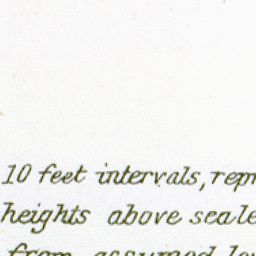 10 feet intervals, repr
heights above seale
from assumed lev